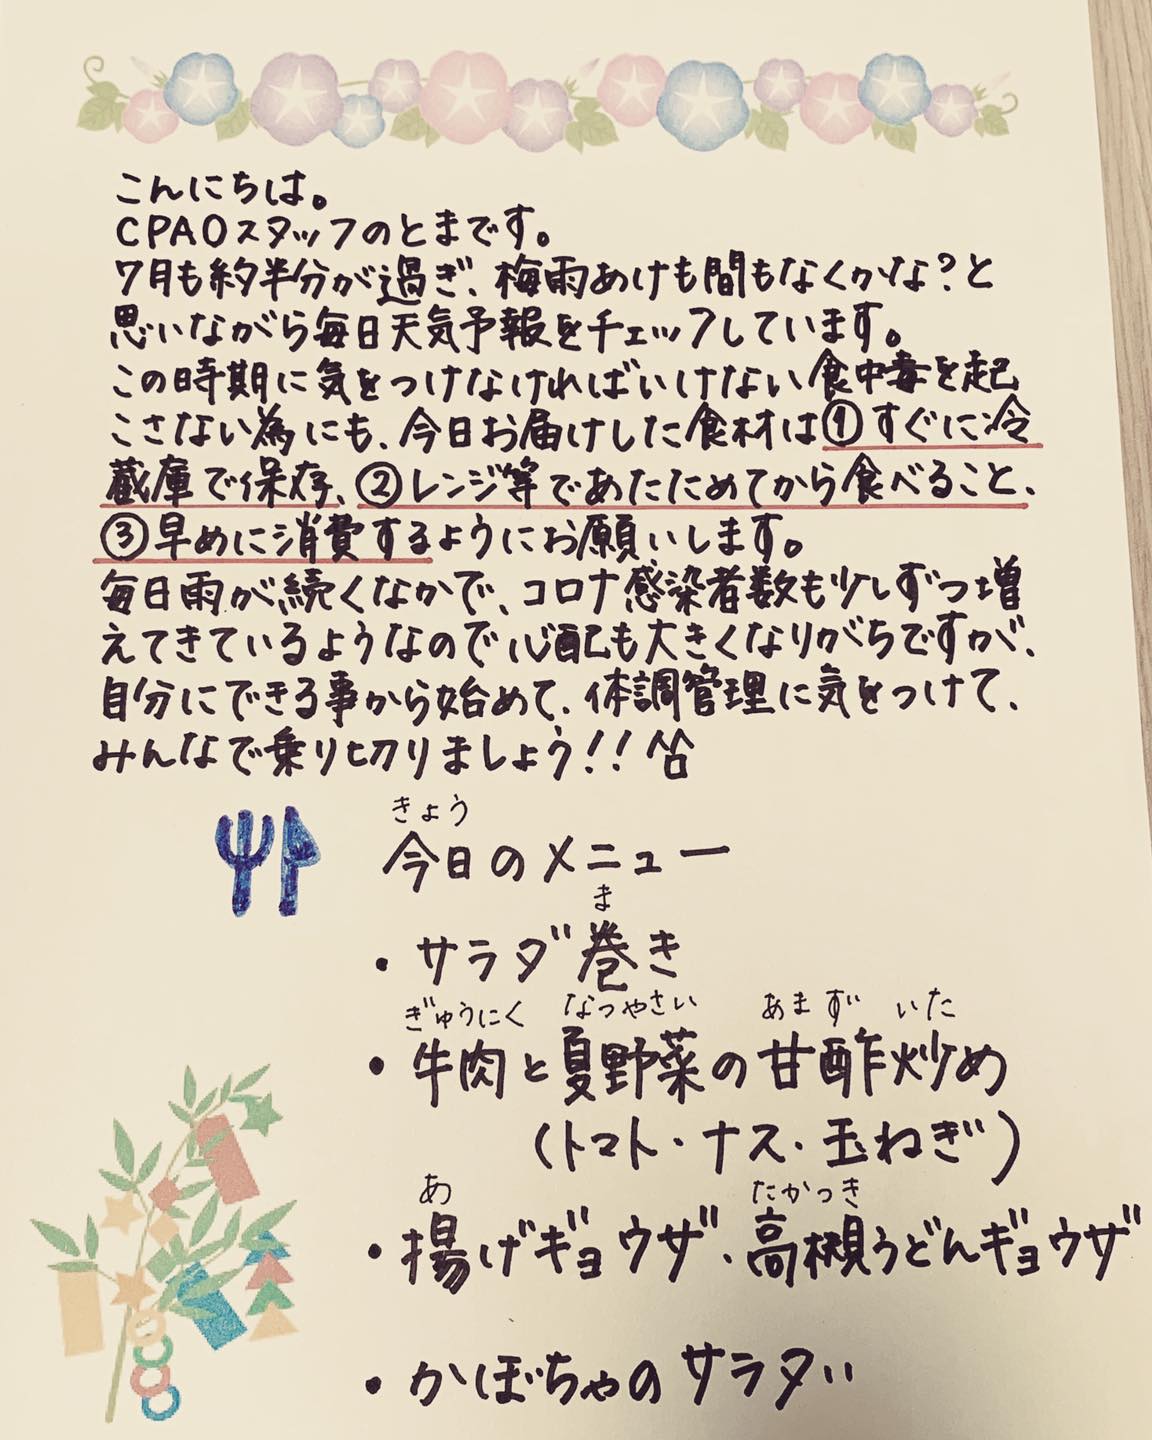 こんにちは。
CPAOスタッフのとまです。
7月も約半分が過ぎ、梅雨あけも間もなくかな?と
思いながら毎日天気予報をチェックしています。
この時期に気をつけなければいけない食中毒を起
こさない為にも、今日お届けした食材は①すぐに冷
蔵庫で保存、②レンジ等であたためてから食べること、
③早めに消費するようにお願いします。
毎日雨が続くなかで、コロナ感染者数も少しずつ増
えてきているようなので心配も大きくなりがちですが、
自分にできる事から始めて、体調管理に気をつけて、
みんなで乗り切りましょう!!
きょう
今日のメニュー
ま
・サラダ巻き
ぎゅうにく なつやさい あまず いた
・牛肉と夏野菜の甘酢炒め
(トマト・ナス・玉ねぎ)
あ たかつき
・揚げギョウザ、高槻うどんギョウザ
・かぼちゃのサラダ